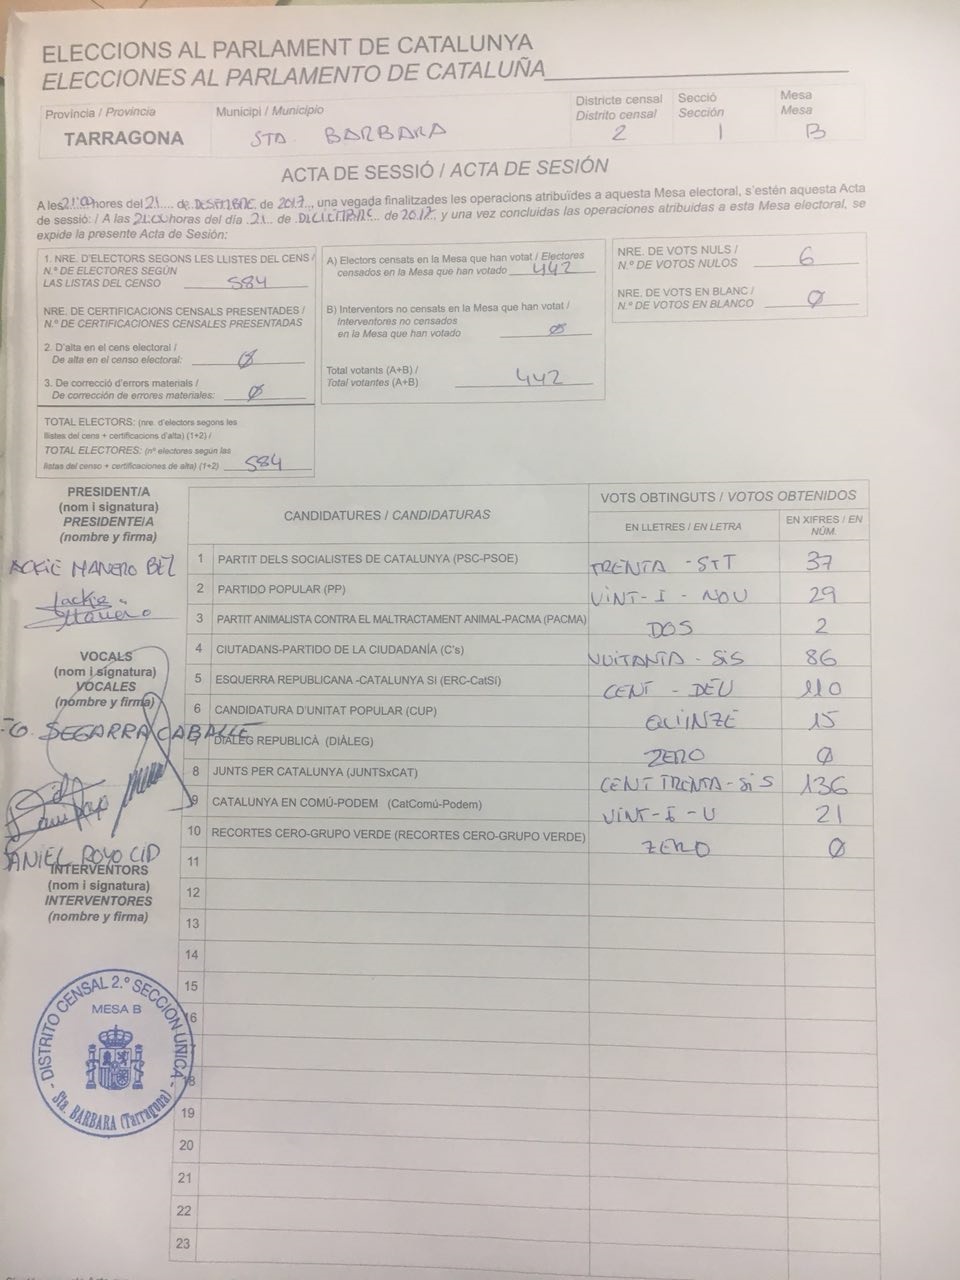 ELECCIONS AL PARLAMENT DE CATALUNYA
ELECCIONES AL PARLAMENTO DE CATALUÑA
Provincia / Provincia
TARRAGONA
Municipi / Municipio
STA. BARBARA
Districte censal
Distrito censal
2
Secció
Sección
1
Mesa
Mesa
B
ACTA DE SESSIÓ / ACTA DE SESIÓN
A les 21:00 hores del 21 de DESEMBRE de 2017, una vegada finalitzades les operacions atribuïdes a aquesta Mesa electoral, s'estén aquesta Acta
de sessió: / A las 21:00 horas del día 21 de DICIEMBRE de 2017 y una vez concluidas las operaciones atribuidas a esta Mesa electoral, se
expide la presente Acta de Sesión:
1. NRE. D'ELECTORS SEGONS LES LLISTES DEL CENS /
N.º DE ELECTORES SEGÚN
LAS LISTAS DEL CENSO 584
NRE. DE CERTIFICACIONS CENSALS PRESENTADES /
N.º DE CERTIFICACIONES CENSALES PRESENTADAS
2. D'alta en el cens electoral /
De alta en el censo electoral: Ø
3. De correcció d'errors materials /
De corrección de errores materiales: Ø
TOTAL ELECTORS: (nre. d'electors segons les
llistes del cens + certificacions d'alta) (1+2) /
TOTAL ELECTORES: (nº electores según las
listas del censo + certificaciones de alta) (1+2) 584
A) Electors censats en la Mesa que han votat / Electores
censados en la Mesa que han votado 442
B) Interventors no censats en la Mesa que han votat /
Interventores no censados
en la Mesa que han votado Ø
Total votants (A+B) /
Total votantes (A+B) 442
NRE. DE VOTS NULS /
N.º DE VOTOS NULOS 6
NRE. DE VOTS EN BLANC /
N.º DE VOTOS EN BLANCO Ø
PRESIDENT/A
(nom i signatura)
PRESIDENTE/A
(nombre y firma)
ACKIE MANERO BEL
Jackie
Manero
VOCALS
(nom i signatura)
VOCALES
(nombre y firma)
SEGARRA CABALLE
DANIEL ROYO CID
INTERVENTORS
(nom i signatura)
INTERVENTORES
(nombre y firma)
DISTRITO CENSAL 2.º SECCION UNICA
MESA B
Sta. BARBARA (Tarragona)
CANDIDATURES / CANDIDATURAS
VOTS OBTINGUTS / VOTOS OBTENIDOS
EN LLETRES / EN LETRA
EN XIFRES / EN
NÚM.
1 PARTIT DELS SOCIALISTES DE CATALUNYA (PSC-PSOE) TRENTA - SET 37
2 PARTIDO POPULAR (PP) VINT - I - NOU 29
3 PARTIT ANIMALISTA CONTRA EL MALTRACTAMENT ANIMAL-PACMA (PACMA) DOS 2
4 CIUTADANS-PARTIDO DE LA CIUDADANÍA (C's) VUITANTA - SIS 86
5 ESQUERRA REPUBLICANA -CATALUNYA SÍ (ERC-CatSí) CENT - DEU 110
6 CANDIDATURA D'UNITAT POPULAR (CUP) QUINZE 15
7 DIÀLEG REPUBLICÀ (DIÀLEG) ZERO Ø
8 JUNTS PER CATALUNYA (JUNTSxCAT) CENT TRENTA - SIS 136
9 CATALUNYA EN COMÚ-PODEM (CatComú-Podem) VINT - I - U 21
10 RECORTES CERO-GRUPO VERDE (RECORTES CERO-GRUPO VERDE) ZERO Ø
11
12
13
14
15
16
17
18
19
20
21
22
23